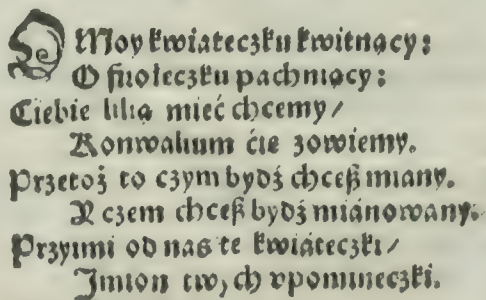 O Moy kwiateczku kwitnący:
O fiiołeczku pachniący:
Ciebie lilią mieć chcemy/
Konwalium ćie zowiemy.
Przetoż to czym bydź chceß miany.
Y czem chceß bydź miánowany:
Przyimi od nas te kwiáteczki/
Imion twych vpomineczki.